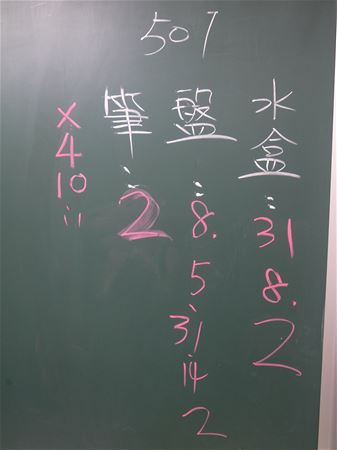 507
水盒：31 8. 2
盤：8. 5、31、14 2
筆：2
×、4、10